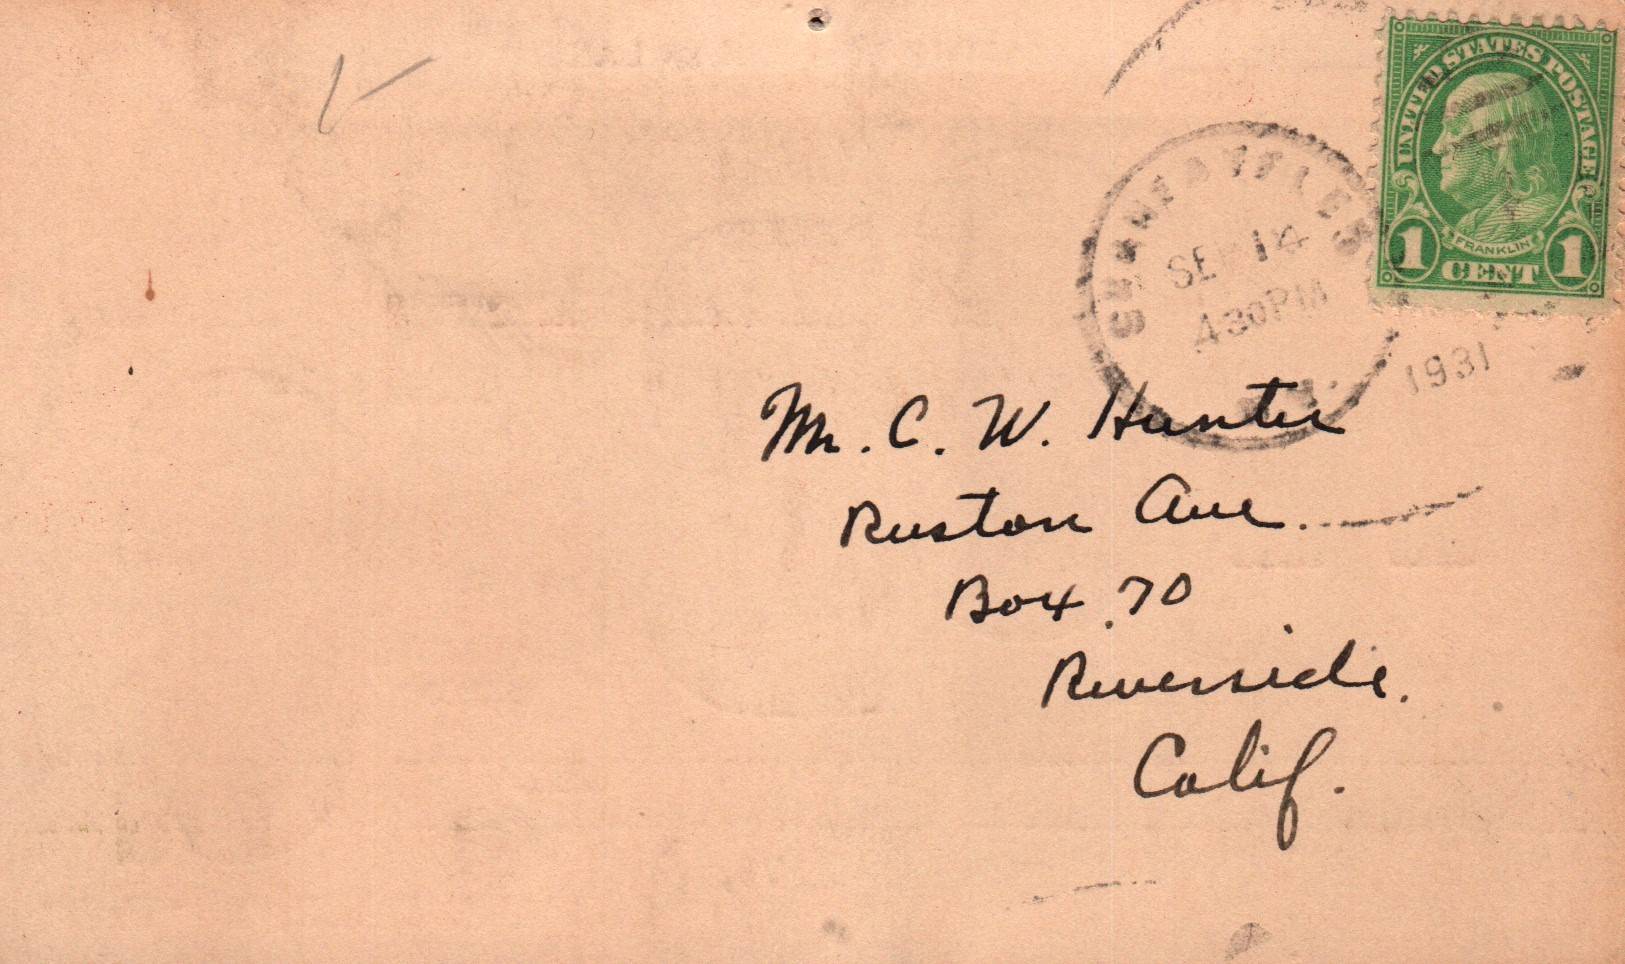 UNITED STATES POSTAGE
FRANKLIN
1 CENT 1
SEP 14
4 30 PM
1931
Mr. C. W. Hunter
Ruston Ave.
Box 70
Riverside.
Calif.